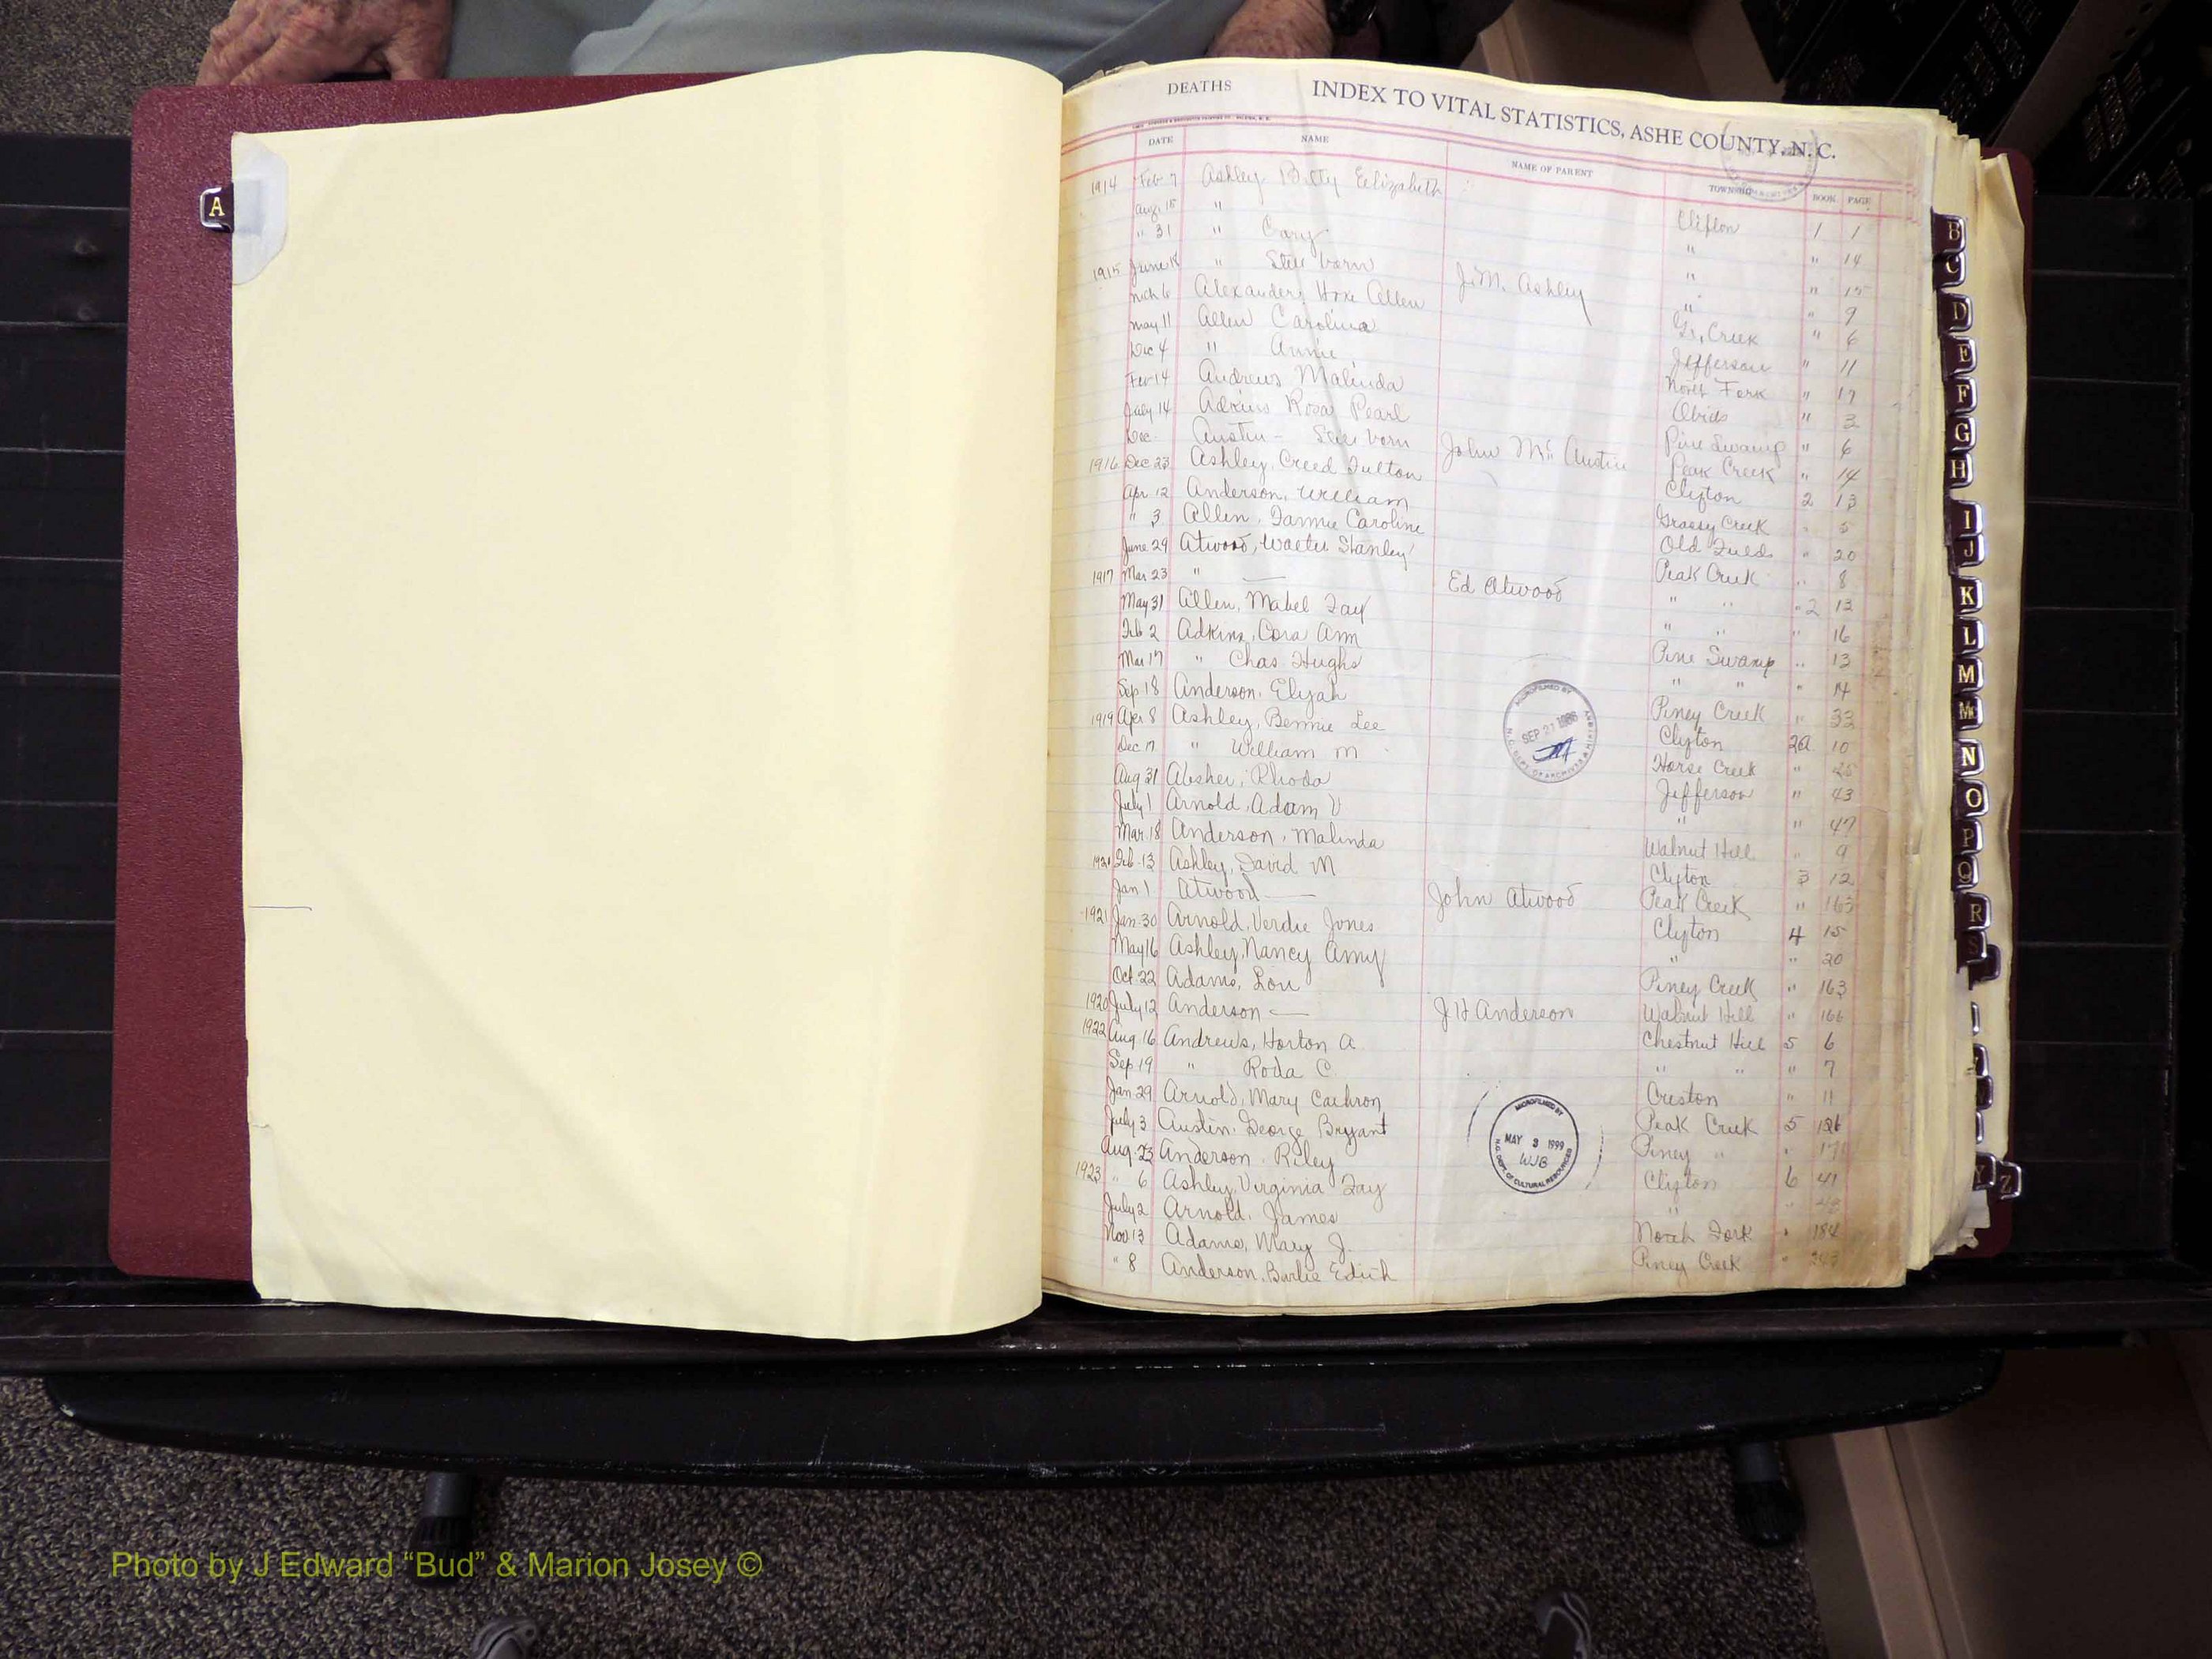 DEATHS INDEX TO VITAL STATISTICS, ASHE COUNTY, N. C.
DATE NAME NAME OF PARENT TOWNSHIP BOOK PAGE
1914 Feb 7 Ashley Betty Elizabeth Clifton 1 1
Aug. 15 " " " 14
" 31 " Cary " " 15
1915 June 18 " Still born J. M. Ashley " " 9
Mch 6 Alexander, Allen Gr. Creek " 6
May 11 Allen Carolina Jefferson " 11
Dec 4 " Annie North Fork " 17
Feb 14 Andrews Malinda Obids " 3
July 14 Adkins Rosa Pearl Pine Swamp " 6
Dec. Austin - Still born John Mc Austin Peak Creek " 14
1916 Dec 23 Ashley, Creed Fulton Clifton 2 13
Apr. 12 Anderson, William Grassy Creek " 5
" 3 Allen, Fannie Caroline Old Fields " 20
June 29 Atwood, Walter Stanley Peak Creek " 8
1917 Mar. 23 " — Ed Atwood " " " 2 13
May 31 Allen, Mabel Fay " " " 16
Feb 2 Adkins, Cora Ann Pine Swamp " 13
Mar 17 " Chas Hughs " " " 14
Sep. 18 Anderson, Elijah Piney Creek " 33
1919 Apr 8 Ashley, Bennie Lee Clifton 2a 10
Dec. 17 " William M Horse Creek " 25
Aug 31 Absher, Rhoda Jefferson " 43
July 1 Arnold, Adam V " " 47
Mar. 18 Anderson, Malinda Walnut Hill " 9
Feb. 13 Ashley, David M Clifton 3 12
Jan 1 Atwood — John Atwood Peak Creek " 163
1921 Jan. 30 Arnold, Verdie Jones Clifton 4 15
May 16 Ashley, Nancy Amy " " 20
Oct. 22 Adams, Lou Piney Creek " 163
1920 July 12 Anderson — J H Anderson Walnut Hill " 166
1922 Aug. 16 Andrews, Horton A Chestnut Hill 5 6
Sep 19 " Roda C. " " " 7
Jan 29 Arnold, Mary Creston " 11
July 3 Austin, George Bryant Peak Creek 5
Aug. 23 Anderson, Riley Piney "
1923 " 6 Ashley, Virginia Fay Clifton 6 41
July 2 Arnold, James " "
Nov. 13 Adams, Mary J. North Fork " 184
" 8 Anderson, Edith Piney Creek "
MICROFILMED BY
SEP 27 1966
N. C. DEPT. OF ARCHIVES &
MICROFILMED BY
MAY 3 1999
WJB
N.C. DEPT. OF CULTURAL RESOURCES
A
B
C
D
E
F
G
H
I
J
K
L
M
Mc
N
O
P
Q
R
S
Y
Z
Photo by J Edward “Bud” & Marion Josey ©